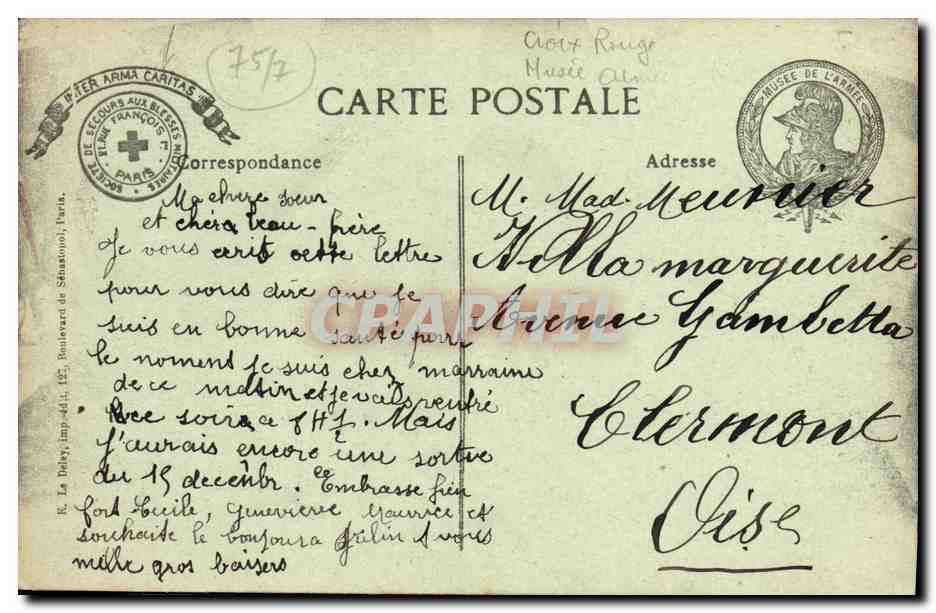 75/7
Croix Rouge
Musée
INTER ARMA CARITAS
SOCIÉTÉ DE SECOURS AUX BLESSÉS MILITAIRES
21. RUE FRANÇOIS 1er
PARIS
CARTE POSTALE
MUSÉE DE L'ARMÉE
Correspondance
Adresse
Ma chère soeur
et chèra beau-frère
Je vous ecrit cette lettre
pour vous dire que je
suis en bonne santé pour
le noment je suis chez marraine
de ce matin et je vais rentré
ce soir a 8H ½. Mais
j'aurais encore une sortie
du 15 decenbr. Embrasse bien
fort Cécile, Geneviève Maurice et
souhaite le bonjour a vous
mille gros baisers
M. Mad. Meunier
Villa marguerite
Avenue Gambetta
Clermont
Oise
E. Le Deley, imp.-édit, 127, Boulevard de Sébastopol, Paris.
CRAPHIL